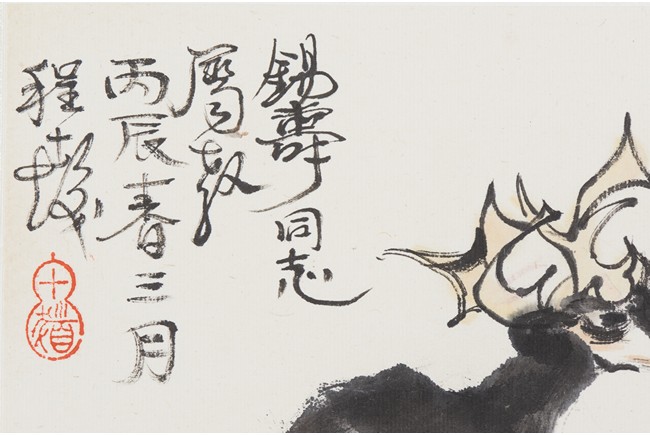 錫壽同志
屬教
丙辰春三月
程十髮